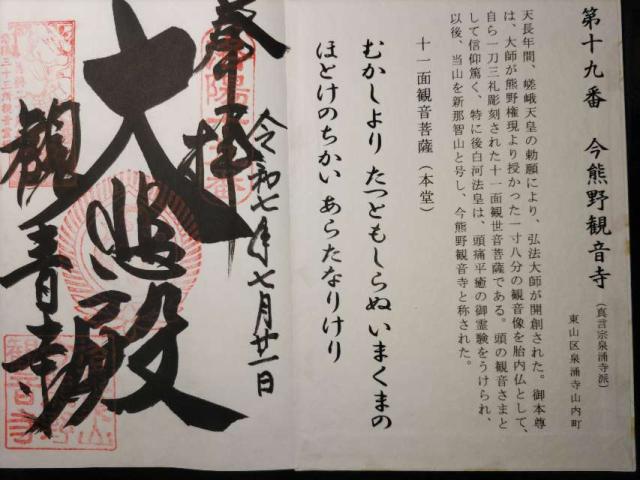 第十九番 今熊野観音寺
（真言宗泉涌寺派）
東山区泉涌寺山内町
天長年間、嵯峨天皇の勅願により、弘法大師が開創された。御本尊
は、大師が熊野権現より授かった一寸八分の観音像を胎内仏として、
自ら一刀三礼彫刻された十一面観世音菩薩である。頭の観音さまと
して信仰篤く、特に後白河法皇は、頭痛平癒の御霊験をうけられ、
以後、当山を新那智山と号し、今熊野観音寺と称された。
十一面観音菩薩（本堂）
むかしより たつともしらぬ いまくまの
ほとけのちかい あらたなりけり
令和七年七月廿一日
奉拝
大悲殿
観音寺